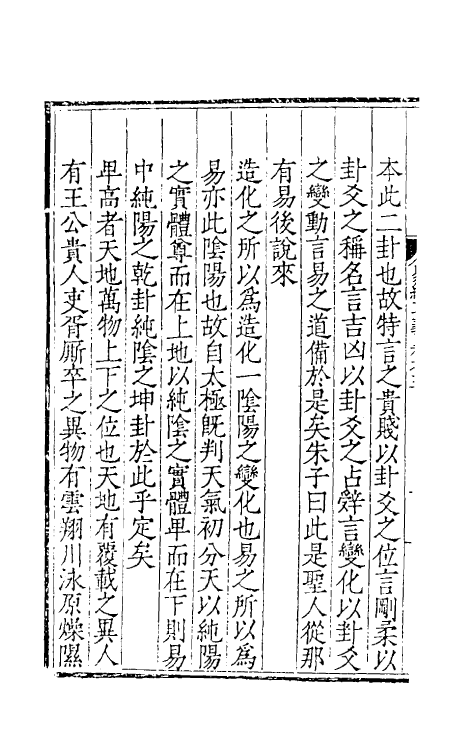 本此二卦也故特言之貴賤以卦爻之位言剛柔以
卦爻之稱名言吉凶以卦爻之占辭言變化以卦爻
之變動言易之道備於是矣朱子曰此是聖人從那
有易後說來
造化之所以為造化一陰陽之變化也易之所以為
易亦此陰陽也故自太極旣判天氣初分天以純陽
之實體尊而在上地以純陰之實體卑而在下則易
中純陽之乾卦純陰之坤卦於此乎定矣
卑高者天地萬物上下之位也天地有覆載之異人
有王公貴人吏胥厮卒之異物有雲翔川泳原燥隰